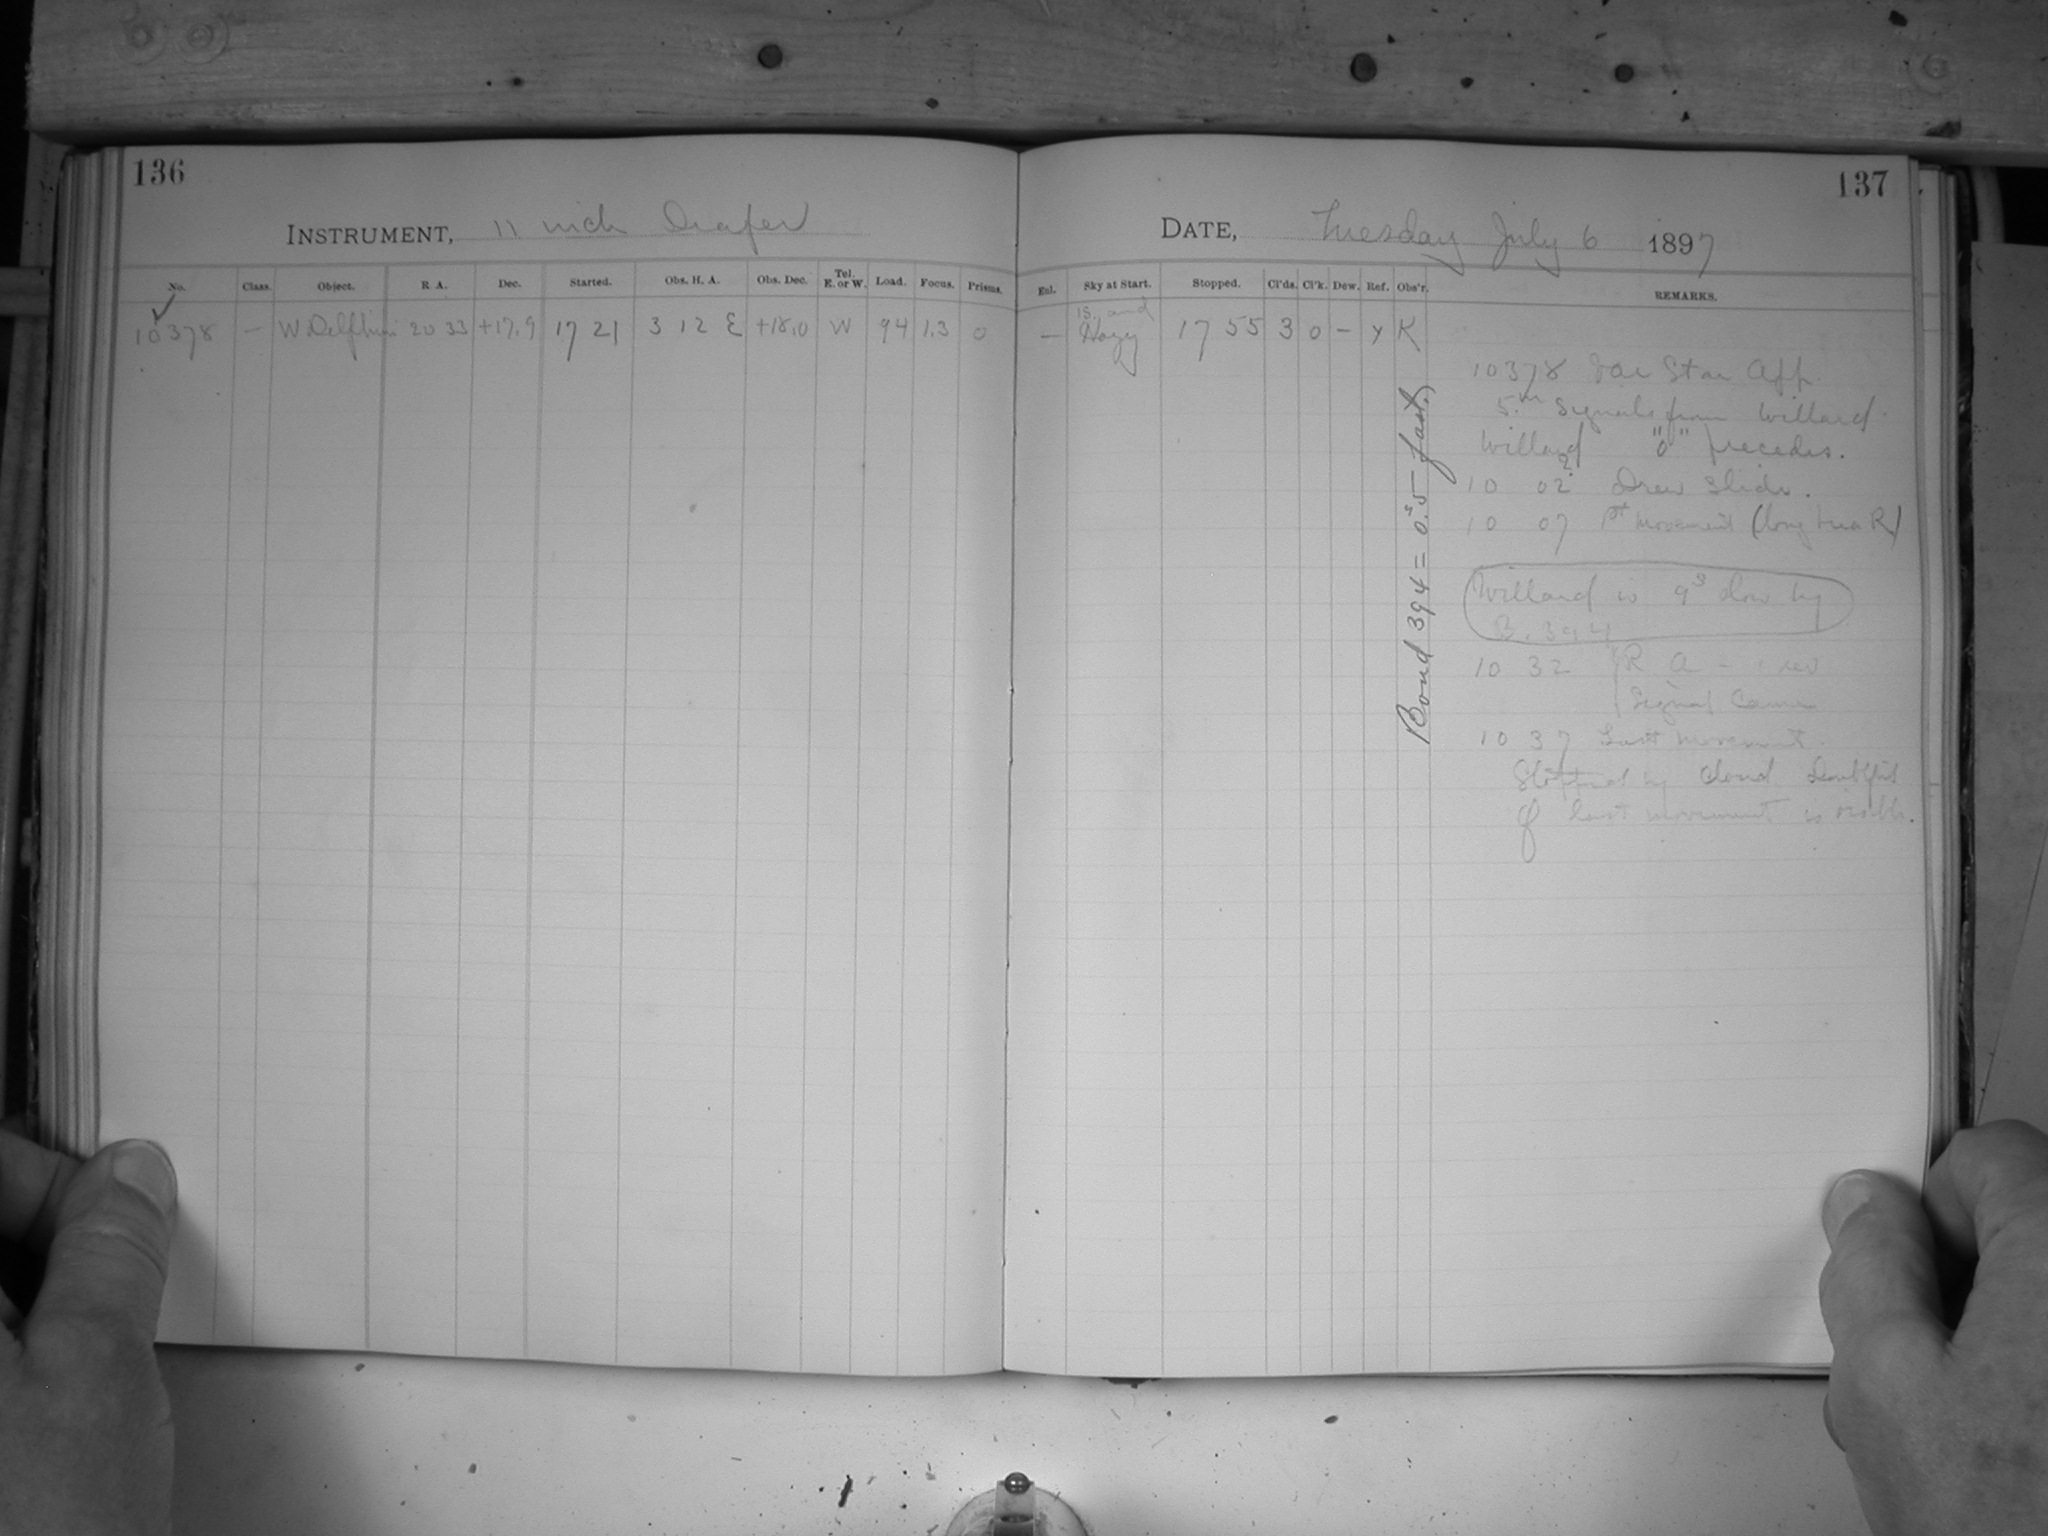 136
INSTRUMENT, 11 inch Draper
No. Class. Object. R. A. Dec. Started. Obs. H. A. Obs. Dec. Tel. E. or W. Load. Focus. Prisms.
10378 — W Delphini 20 33 +17.9 17 21 3 12 E +18.0 W 94 1.3 0
137
DATE, Tuesday July 6 1897
Enl. Sky at Start. Stopped. Cl'ds. Cl'k. Dew. Ref. Obs'r. REMARKS.
— Hazy 17 55 3 0 – y K
Bond 394 = 0.5s fast,
10378 Var Star App.
5.m Signals from Willard.
Willard "0" precedes.
10 02 Drew Slide.
10 07 1st movement (long
Willard is 9s slow by
B. 394
10 32 R A – 1 rev
Signal Came
10 37 Last movement.
Stopped by cloud Doubtful
if last movement is visible.